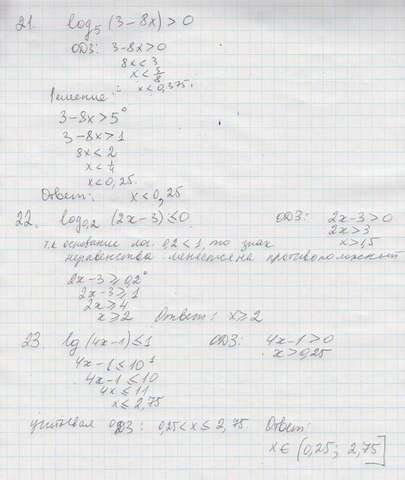 21. log₅ (3-8x) > 0
ОДЗ: 3-8x>0
8x<3
x<3/8
x<0,375.
Решение:
3-8x>5⁰
3-8x>1
8x<2
x<1/4
x<0,25.
Ответ: x<0,25
22. log₀,₂ (2x-3) ≤0 ОДЗ: 2x-3>0
2x>3
x>1,5
т.к основание лог. 0,2<1, то знак
неравенства меняется на противоположный
2x-3≥0,2⁰
2x-3≥1
2x≥4
x≥2 Ответ: x≥2
23. lg (4x-1)≤1 ОДЗ: 4x-1>0
x>0,25
4x-1≤10¹
4x-1≤10
4x≤11
x≤2,75
учитывая ОДЗ: 0,25<x≤2,75 Ответ:
x∈(0,25; 2,75]